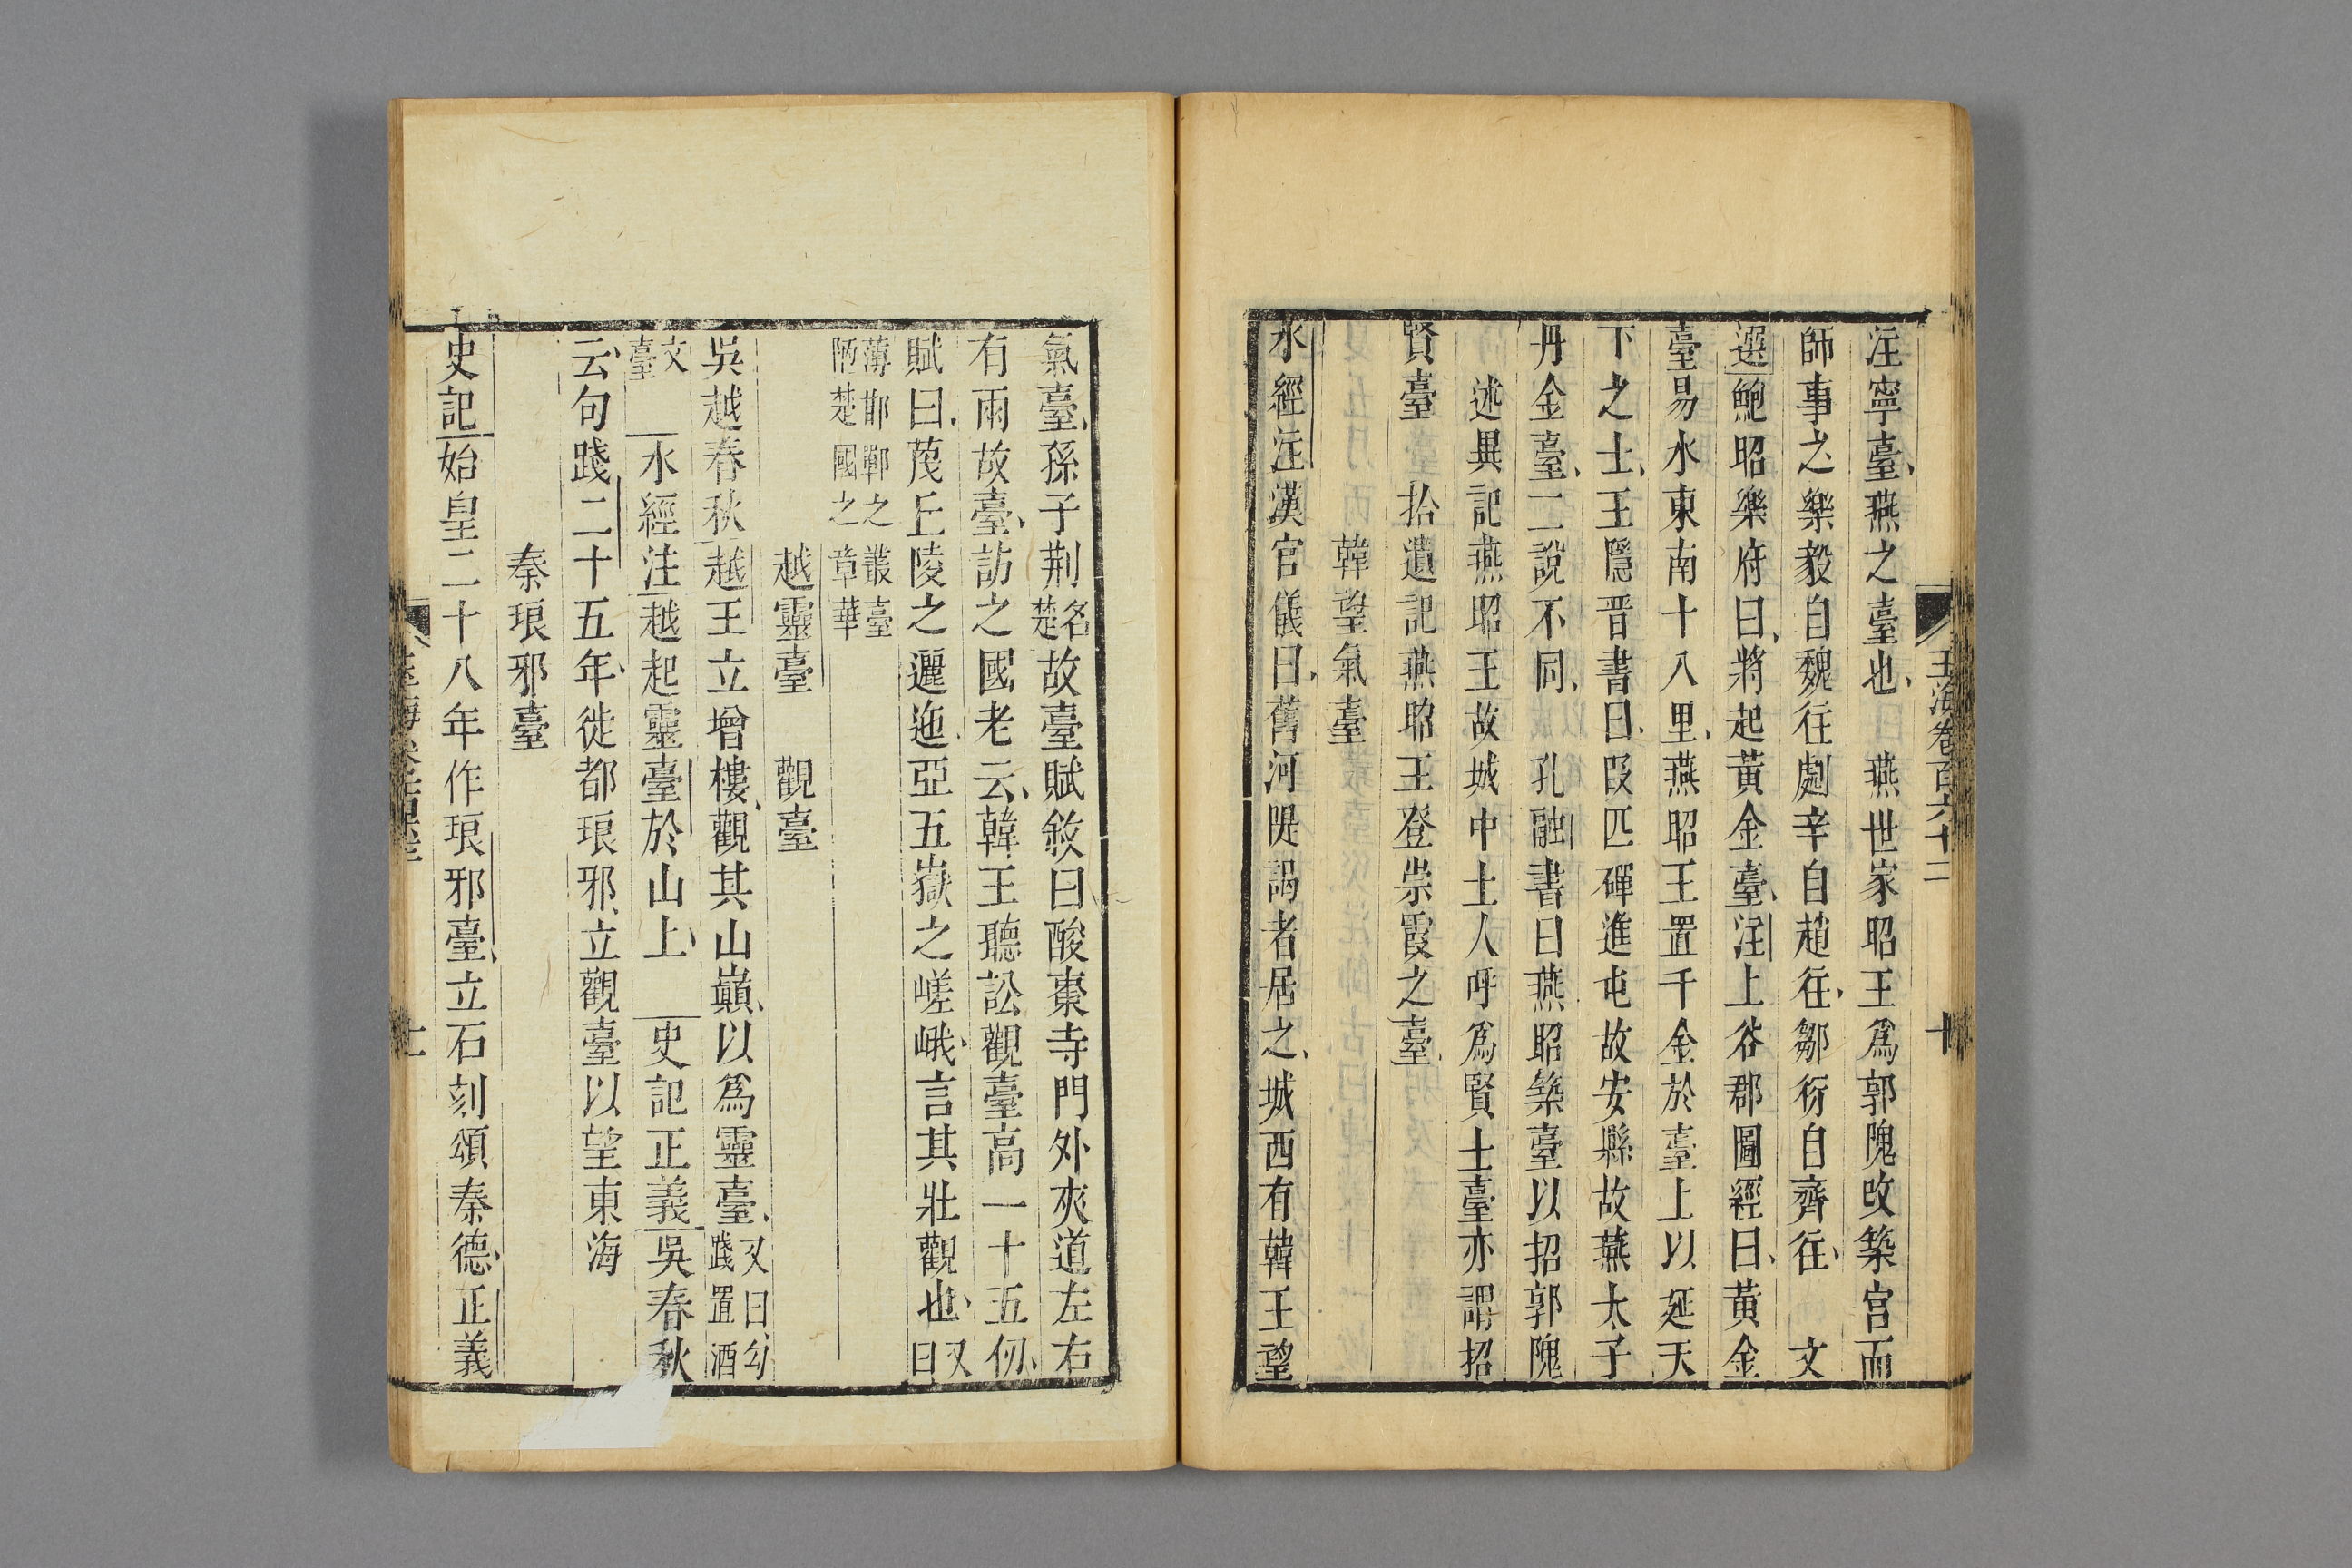 玉海卷百六十二
十
注寧臺燕之臺也　燕世家昭王爲郭隗改築宮而
師事之樂毅自魏往劇辛自趙往鄒衍自齊往　文
選鮑昭樂府曰將起黃金臺注上谷郡圖經曰黃金
臺易水東南十八里燕昭王置千金於臺上以延天
下之士王隱晋書曰段匹磾進屯故安縣故燕太子
丹金臺二說不同　孔融書曰燕昭築臺以招郭隗
述異記燕昭王故城中土人呼爲賢士臺亦謂招
賢臺　拾遺記燕昭王登崇霞之臺
韓望氣臺
水經注漢官儀曰舊河隄謁者居之城西有韓王望
氣臺孫子荆名楚故臺賦敘曰酸棗寺門外夾道左右
有兩故臺訪之國老云韓王聽訟觀臺高一十五仞
賦曰茂丘陵之邐迤亞五嶽之嵯峨言其壯觀也又曰
薄邯鄲之叢臺
陋楚國之章華
越靈臺　觀臺
吳越春秋越王立增樓觀其山巔以爲靈臺又曰勾踐置酒
文臺　水經注越起靈臺於山上　史記正義吳春秋
云句踐二十五年徙都琅邪立觀臺以望東海
秦琅邪臺
史記始皇二十八年作琅邪臺立石刻頌秦德正義
十一